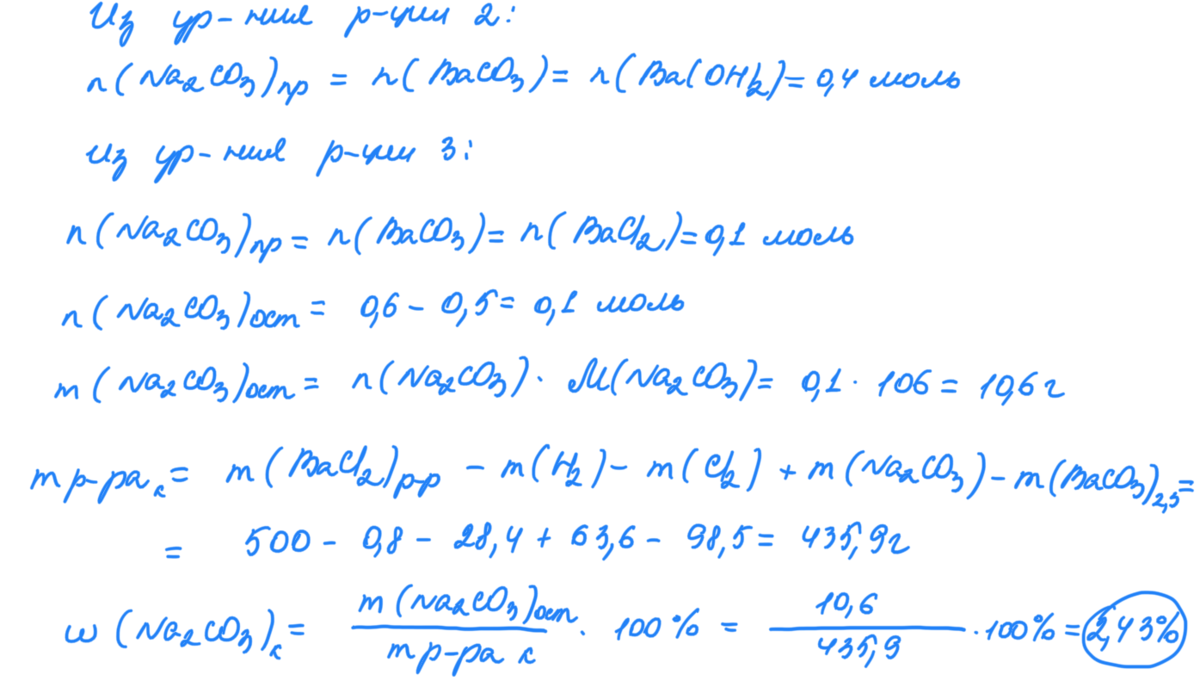 Из ур-ния р-ции 2:
n(Na₂CO₃)пр = n(BaCO₃) = n(Ba(OH)₂) = 0,4 моль
Из ур-ния р-ции 3:
n(Na₂CO₃)пр = n(BaCO₃) = n(BaCl₂) = 0,1 моль
n(Na₂CO₃)ост = 0,6 - 0,5 = 0,1 моль
m(Na₂CO₃)ост = n(Na₂CO₃) · M(Na₂CO₃) = 0,1 · 106 = 10,6 г
m р-ра к = m(BaCl₂)р-р - m(H₂) - m(Cl₂) + m(Na₂CO₃) - m(BaCO₃)2,3 =
= 500 - 0,8 - 28,4 + 63,6 - 98,5 = 435,9 г
ω(Na₂CO₃)к = m(Na₂CO₃)ост / m р-ра к · 100% = 10,6 / 435,9 · 100% = 2,43%